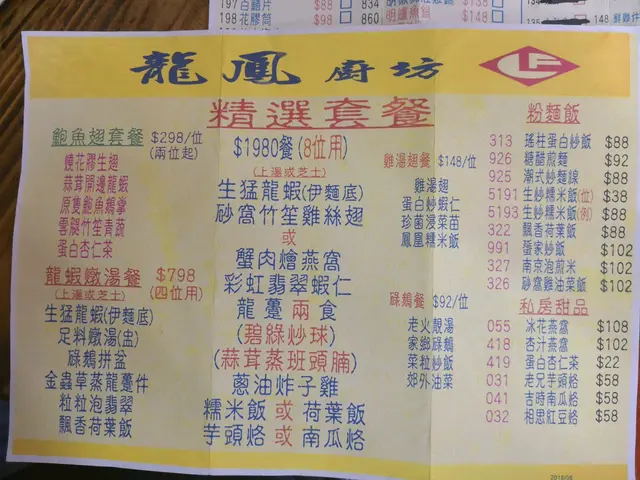 197 白鱔片 $88 834
198 花膠筒 $98 860
$138
$143
148
龍鳳廚坊 LF
精選套餐
鮑魚翅套餐 $298/位
(兩位起)
燒花膠生翅
蒜茸開邊龍蝦
原隻鮑魚鵝掌
雲腿竹笙青蔬
蛋白杏仁茶
龍蝦燉湯餐 $798
(上湯或芝士) (四位用)
生猛龍蝦(伊麵底)
足料燉湯(盅)
碌鵝拼盆
金蟲草蒸龍躉件
粒粒泡翡翠
飄香荷葉飯
$1980餐(8位用)
(上湯或芝士)
生猛龍蝦(伊麵底)
砂窩竹笙雞絲翅
或
蟹肉燴燕窩
彩虹翡翠蝦仁
龍躉兩食
(碧綠炒球)
(蒜茸蒸班頭腩)
蔥油炸子雞
糯米飯或荷葉飯
芋頭烙或南瓜烙
雞湯翅餐 $148/位
雞湯翅
蛋白炒蝦仁
珍菌浸菜苗
鳳凰糯米飯
碌鵝餐 $92/位
老火靚湯
家鄉碌鵝
菜粒炒飯
郊外油菜
粉麵飯
313 瑤柱蛋白炒飯 $88
926 糖醋煎麵 $92
925 潮式炒麵線 $88
5191 生炒糯米飯(位) $38
5193 生炒糯米飯(例) $88
322 飄香荷葉飯 $88
991 蜑家炒飯 $102
327 南京泡煎米 $102
326 砂窩雞油菜飯 $102
私房甜品
055 冰花燕窩 $108
418 杏汁燕窩 $102
419 蛋白杏仁茶 $22
031 老兄芋頭烙 $58
041 吉時南瓜烙 $58
032 相思紅豆烙 $58
2018/08